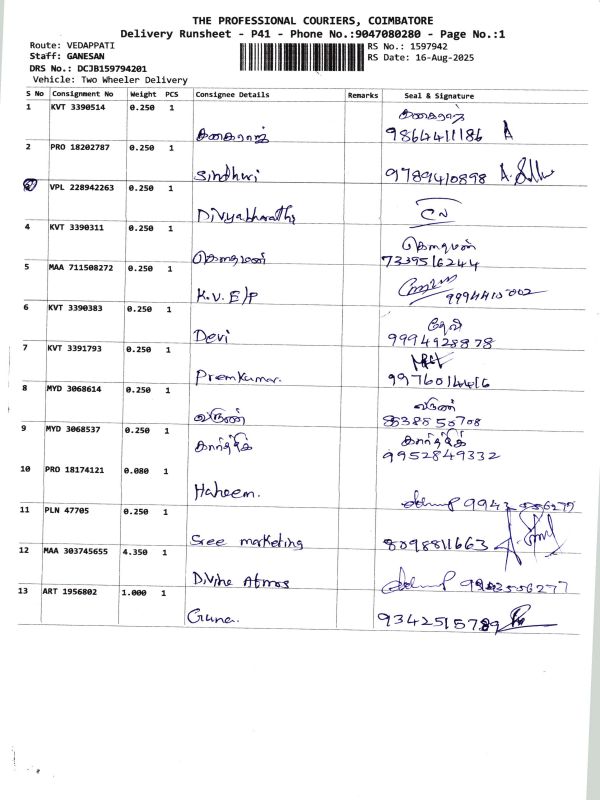 THE PROFESSIONAL COURIERS, COIMBATORE
Delivery Runsheet - P41 - Phone No.:9047080280 - Page No.:1
Route: VEDAPPATI RS No.: 1597942
Staff: GANESAN RS Date: 16-Aug-2025
DRS No.: DCJB159794201
Vehicle: Two Wheeler Delivery
S No Consignment No Weight PCS Consignee Details Remarks Seal & Signature
1 KVT 3390514 0.250 1
கனகராஜ் 9864411186
2 PRO 18202787 0.250 1
Sindhuri 9789410898
VPL 228942263 0.250 1
Divyabharathi
4 KVT 3390311 0.250 1
7339516244
5 MAA 711508272 0.250 1
K.V. E/P 9994415002
6 KVT 3390383 0.250 1 தேவி
Devi 9994928878
7 KVT 3391793 0.250 1
Premkumar. 9976014416
8 MYD 3068614 0.250 1 வருண்
வருண் 8838550708
9 MYD 3068537 0.250 1 கார்த்திக்
கார்த்திக் 9952849332
10 PRO 18174121 0.080 1
Haheem.
11 PLN 47705 0.250 1
Sree marketing 8098811663
12 MAA 303745655 4.350 1
Divine Atmos
13 ART 1956802 1.000 1
Guna. 9342515789